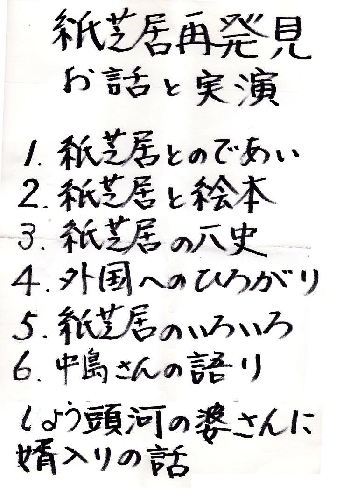 紙芝居再発見
お話と実演
1. 紙芝居とのであい
2. 紙芝居と絵本
3. 紙芝居の八史
4. 外国へのひろがり
5. 紙芝居のいろいろ
6. 中島さんの語り
しょう頭河の婆さんに
婿入りの話